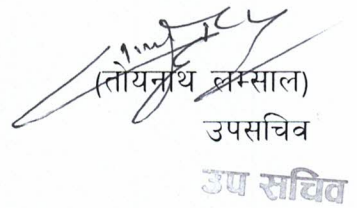 (तोयनाथ लम्साल)
उपसचिव
उप सचिव